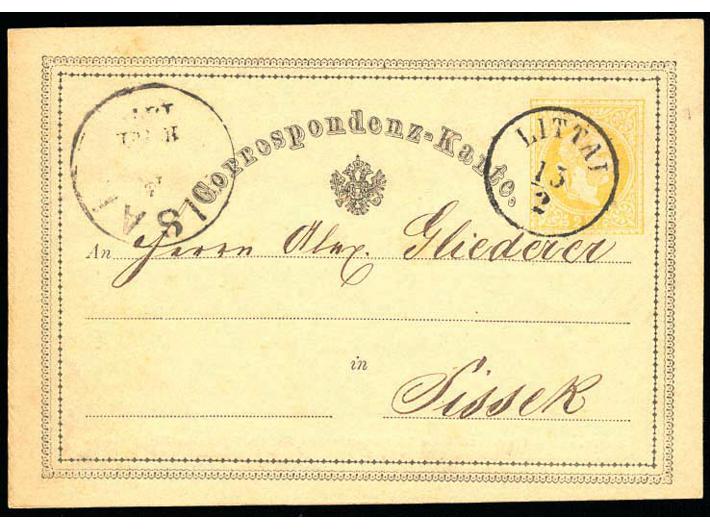 Correspondenz-Karte.
LITTAI
13
2
An Herrn Alex. Gliederer
in
Sissek